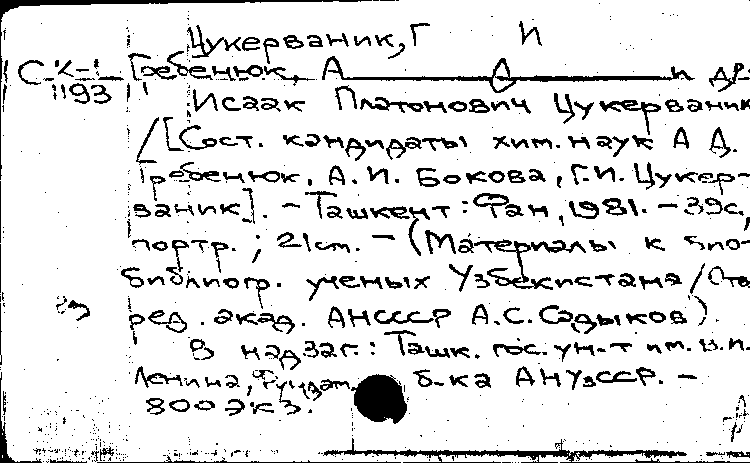 Цукерваник, Г И
С К-1 Гребенюк, А Д и др.
1193
Исаак Платонович Цукерваник
/[Сост. кандидаты хим. наук А Д.
Гребенюк, А.И. Бокова, Г.И. Цукер-
ваник]. – Ташкент: Фан, 1981. – 39с,
портр.; 21см. – (Материалы к био-
библиогр. ученых Узбекистана/Отв
ред. акад. АНСССР А.С. Садыков).
В надзаг.: Ташк. гос. ун-т им. В.И.
Ленина, Фундам. б-ка АНУзССР. –
800 экз.